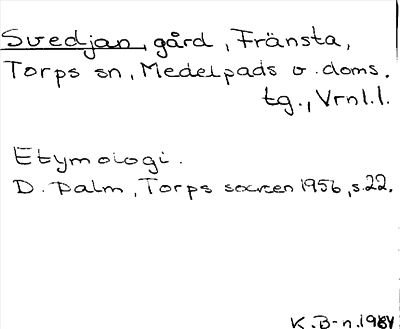 Svedjan, gård, Fränsta,
Torps sn, Medelpads v. doms.
tg., Vrnl.l.
Etymologi.
D. Palm, Torps socken 1956, s.22.
K.B-n.